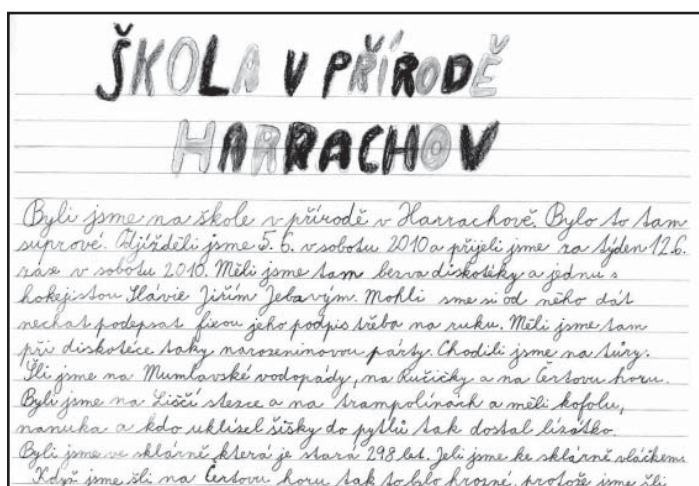 ŠKOLA V PŘÍRODĚ
HARRACHOV
Byli jsme na škole v přírodě v Harrachově. Bylo to tam
suprové. Odjížděli jsme 5. 6. v sobotu 2010 a přijeli jsme za týden 12.6.
záse v sobotu 2010. Měli jsme tam bezva diskotéky a jednu s
hokejistou Slávie Jiřím Jebavým. Mohli sme si od něho dát
nechat podepsat fixou jeho podpis třeba na ruku. Měli jsme tam
při diskotéce taky narozeninovou párty. Chodili jsme na túry.
Šli jsme na Mumlavské vodopády, na Ručičky a na Čertovu horu.
Byli jsme na Liščí stezce a na trampolínách a měli kofolu,
nanuka a kdo uklísel šišky do pytlů tak dostal lízátko.
Byli jsme ve sklárně která je stará 298 let. Jeli jsme ke sklárně vláčkem.
Když jsme šli na Čertovu horu tak to bylo hrozné, protože jsme šli